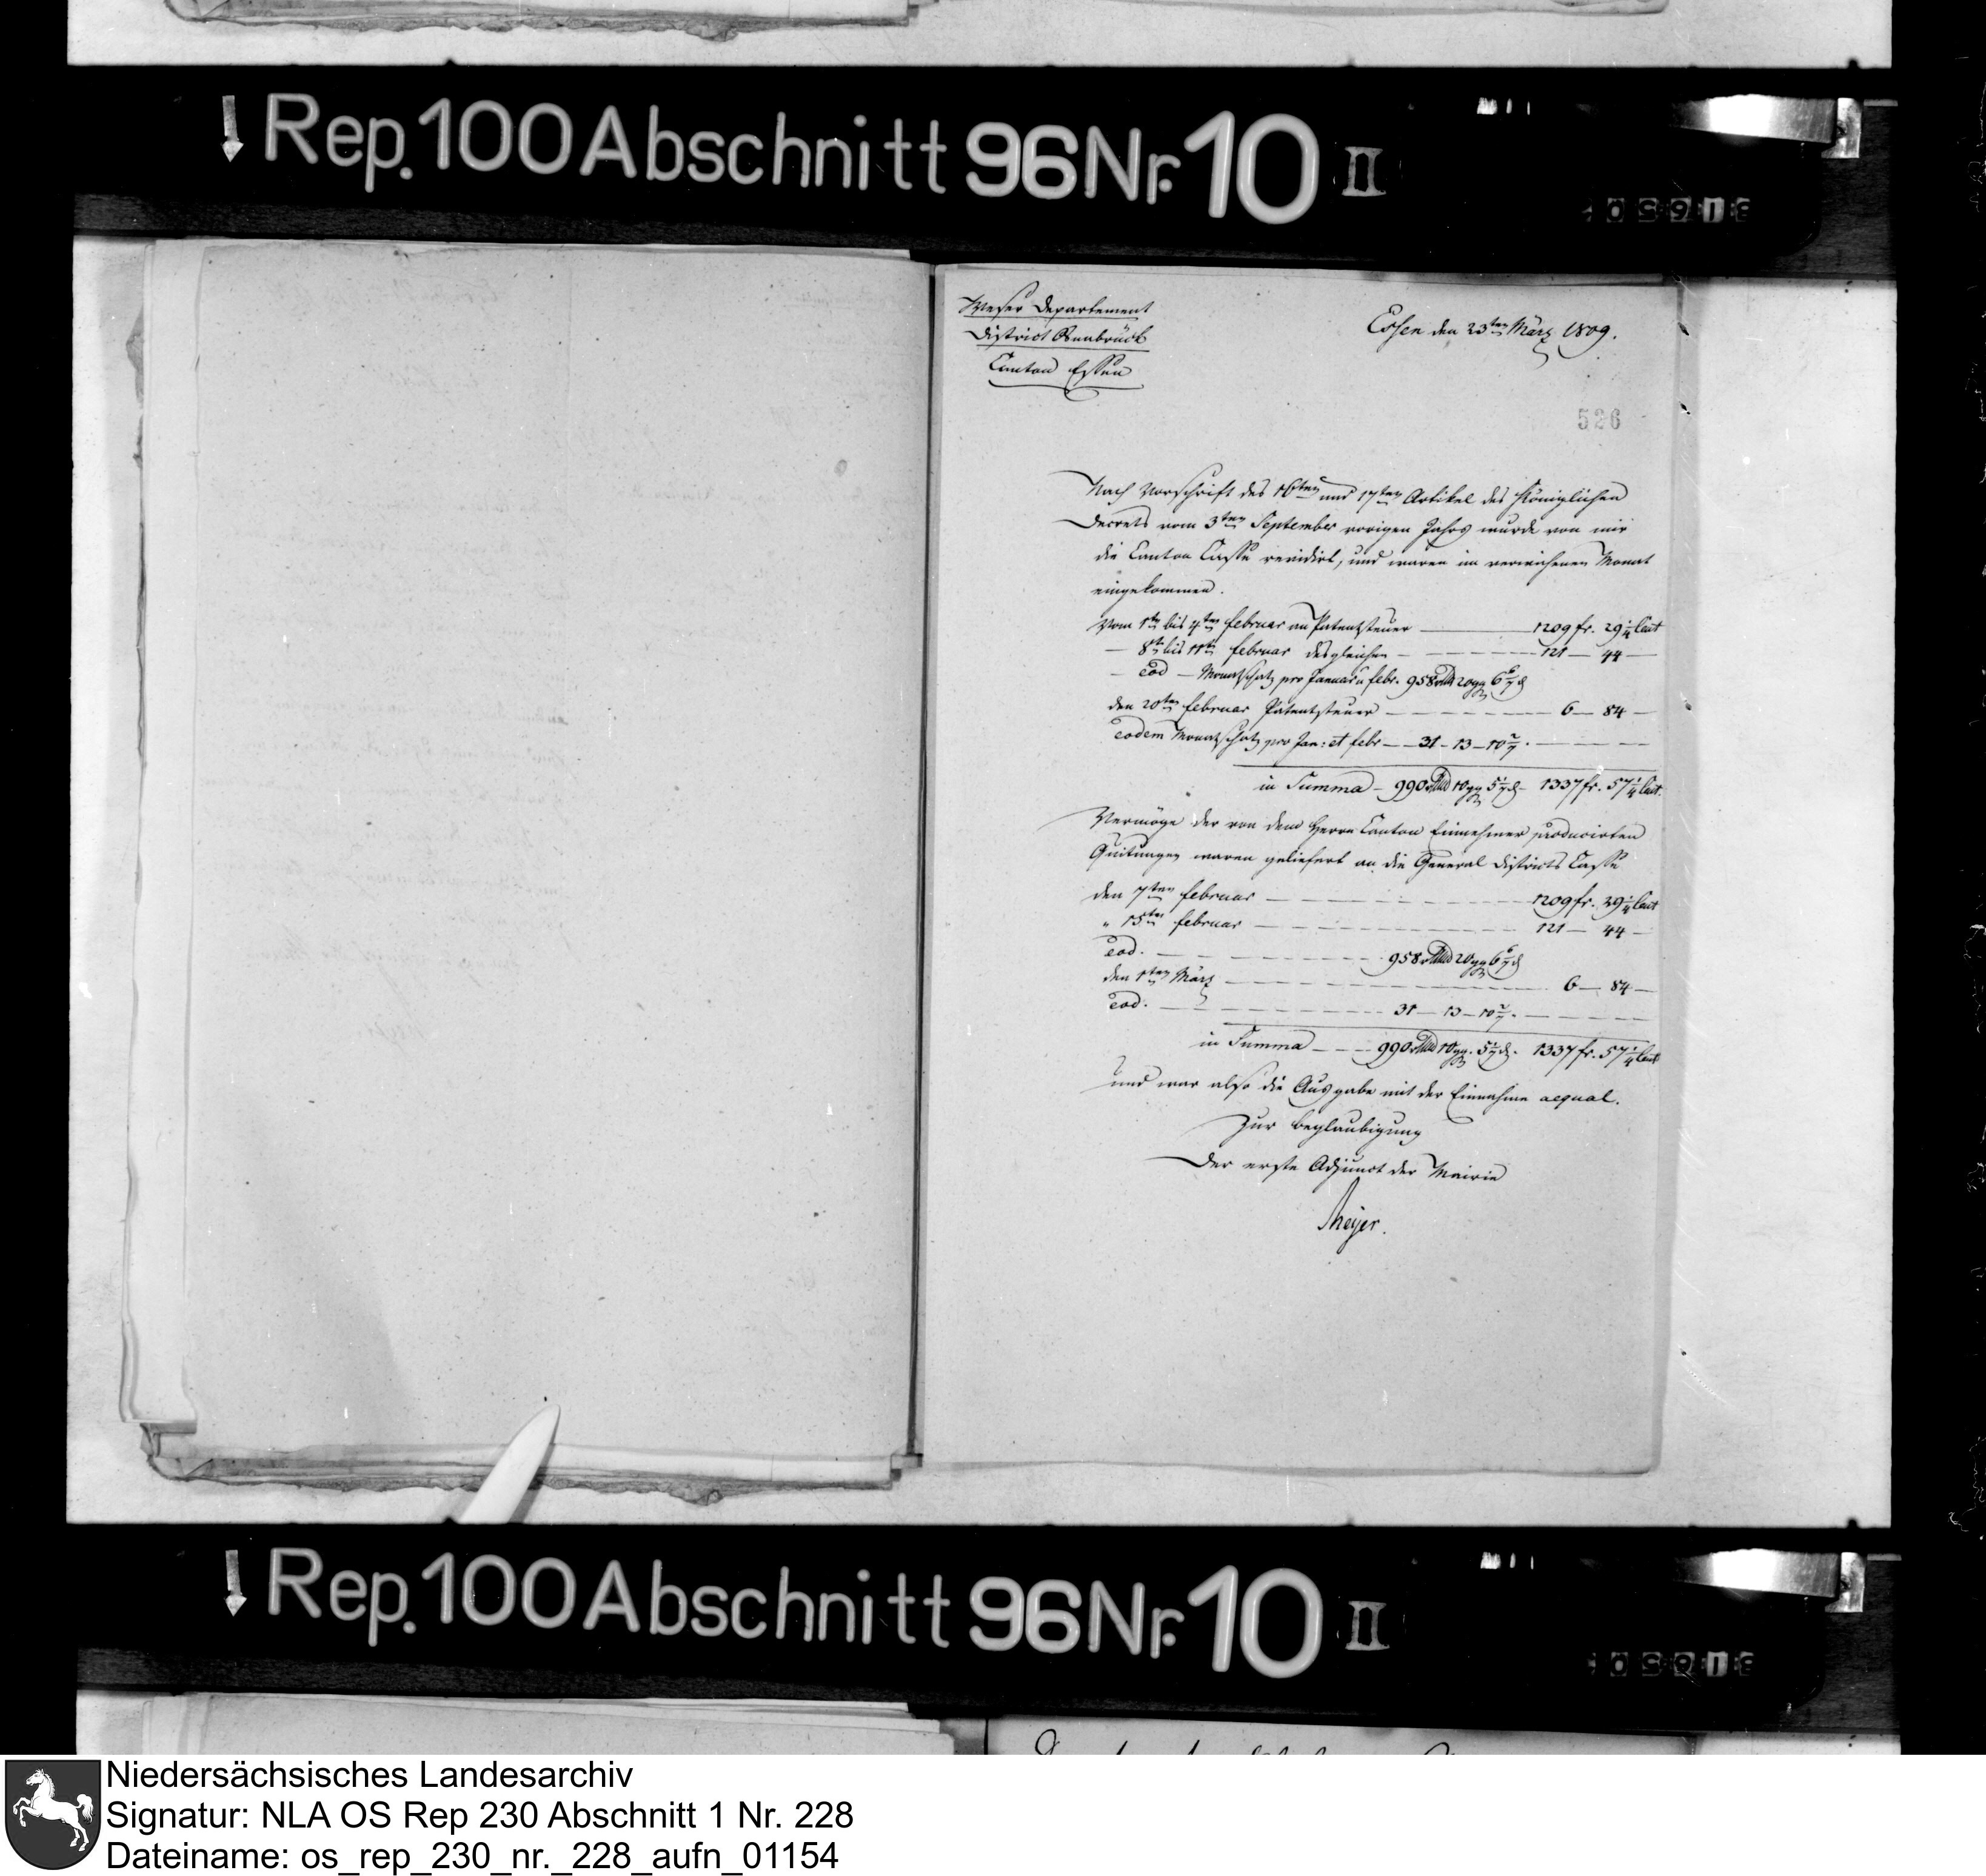 Rep. 100 Abschnitt 96 Nr. 10 II
Weser Departement
District Osnabrück
Canton Essen
Essen den 23ten März 1809.
526
Nach Vorschrift des 16ten und 17ten Artikel des Königlichen
Decrets vom 3ten September vorigen Jahrs wurde von mir
die Canton Casse revidirt, und waren im verwichenen Monat
eingekommen.
Vom 1ten bis 4ten Februar an Patentsteuer — 1209 fr. 29 1/4 Cent
— 8t bis 11ten Februar desgleichen — 121 — 44 —
— eod — Monatschatz pro Januar u Febr. 958 rthlr 20 ggr 6 6/7 d
den 20ten Februar Patentsteuer — 6 — 84 —
eodem Monatschatz pro Jan: et Febr — 31 - 13 - 10 2/7.
in Summa — 990 rthlr 10 ggr 5 1/7 d - 1337 fr. 57 1/4 Cent.
Vermöge der von dem Herrn Canton Einnehmer producirten
Quitungen waren geliefert an die General Districts Casse
den 7ten Februar — 1209 fr. 29 1/4 Cent
" 15ten Februar — 121 — 44 —
eod. — 958 rthlr 20 ggr 6 6/7 d
den 1ten März — 6 — 84 —
eod. — 31 — 13 — 10 2/7.
in Summa — 990 rthlr 10 ggr. 5 1/7 d. 1337 fr. 57 1/4 Cent
und war also die Ausgabe mit der Einnahme aequal.
Zur Beglaubigung
Der erste Adjunct der Mairie
Meyer.
Rep. 100 Abschnitt 96 Nr. 10 II
Niedersächsisches Landesarchiv
Signatur: NLA OS Rep 230 Abschnitt 1 Nr. 228
Dateiname: os_rep_230_nr._228_aufn_01154